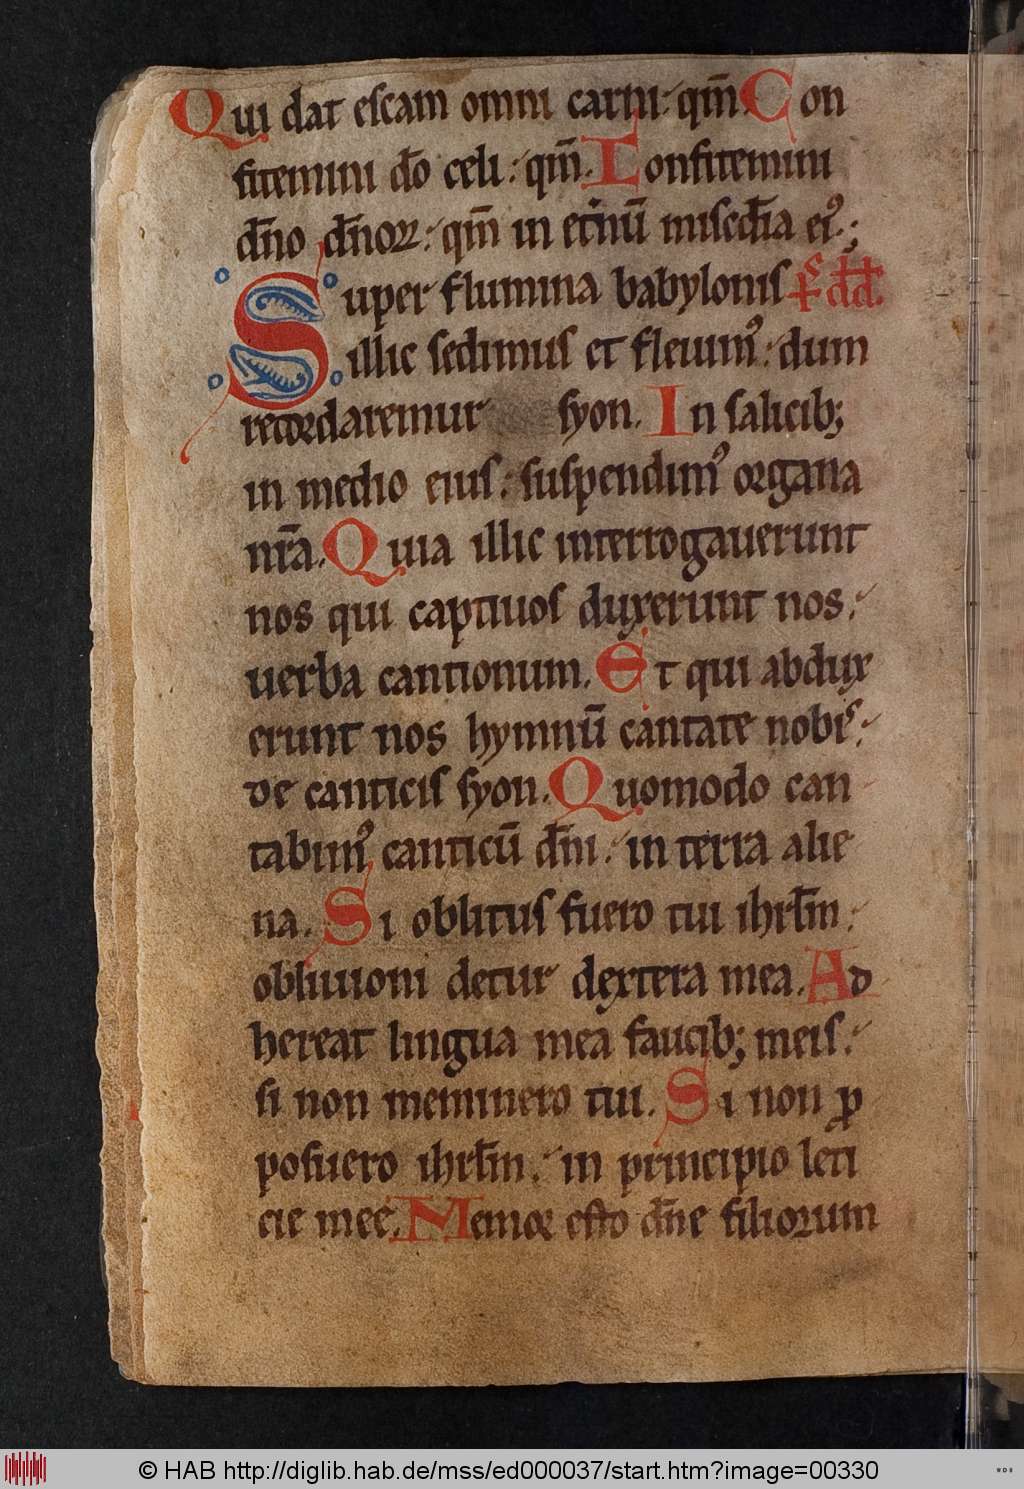 Qui dat escam omni carni: qm̄ Con
fitemini dō celi: qm̄. Confitemini
dn̄o dn̄oꝝ: qm̄ in et̄nū miseđia eiꝰ;
Super flumina babylonis
illic sedimus et fleuimꝰ: dum
recordaremur syon. In salicib;
in medio eius: suspendimꝰ organa
nr̄a. Quia illic interrogauerunt
nos qui captiuos duxerunt nos:
uerba cantionum. Et qui abdux
erunt nos hymnū cantate nobis:
de canticis syon. Quomodo can
tabimꝰ canticū dn̄i: in terra alie
na. Si oblitus fuero tui ihrlm̄:
obliuioni detur dextera mea. Ad
hereat lingua mea faucib; meis:
si non meminero tui. Si non ꝓ
posuero ihrlm̄: in principio leti
cie meę. Memor esto dn̄e filiorum
© HAB http://diglib.hab.de/mss/ed000037/start.htm?image=00330